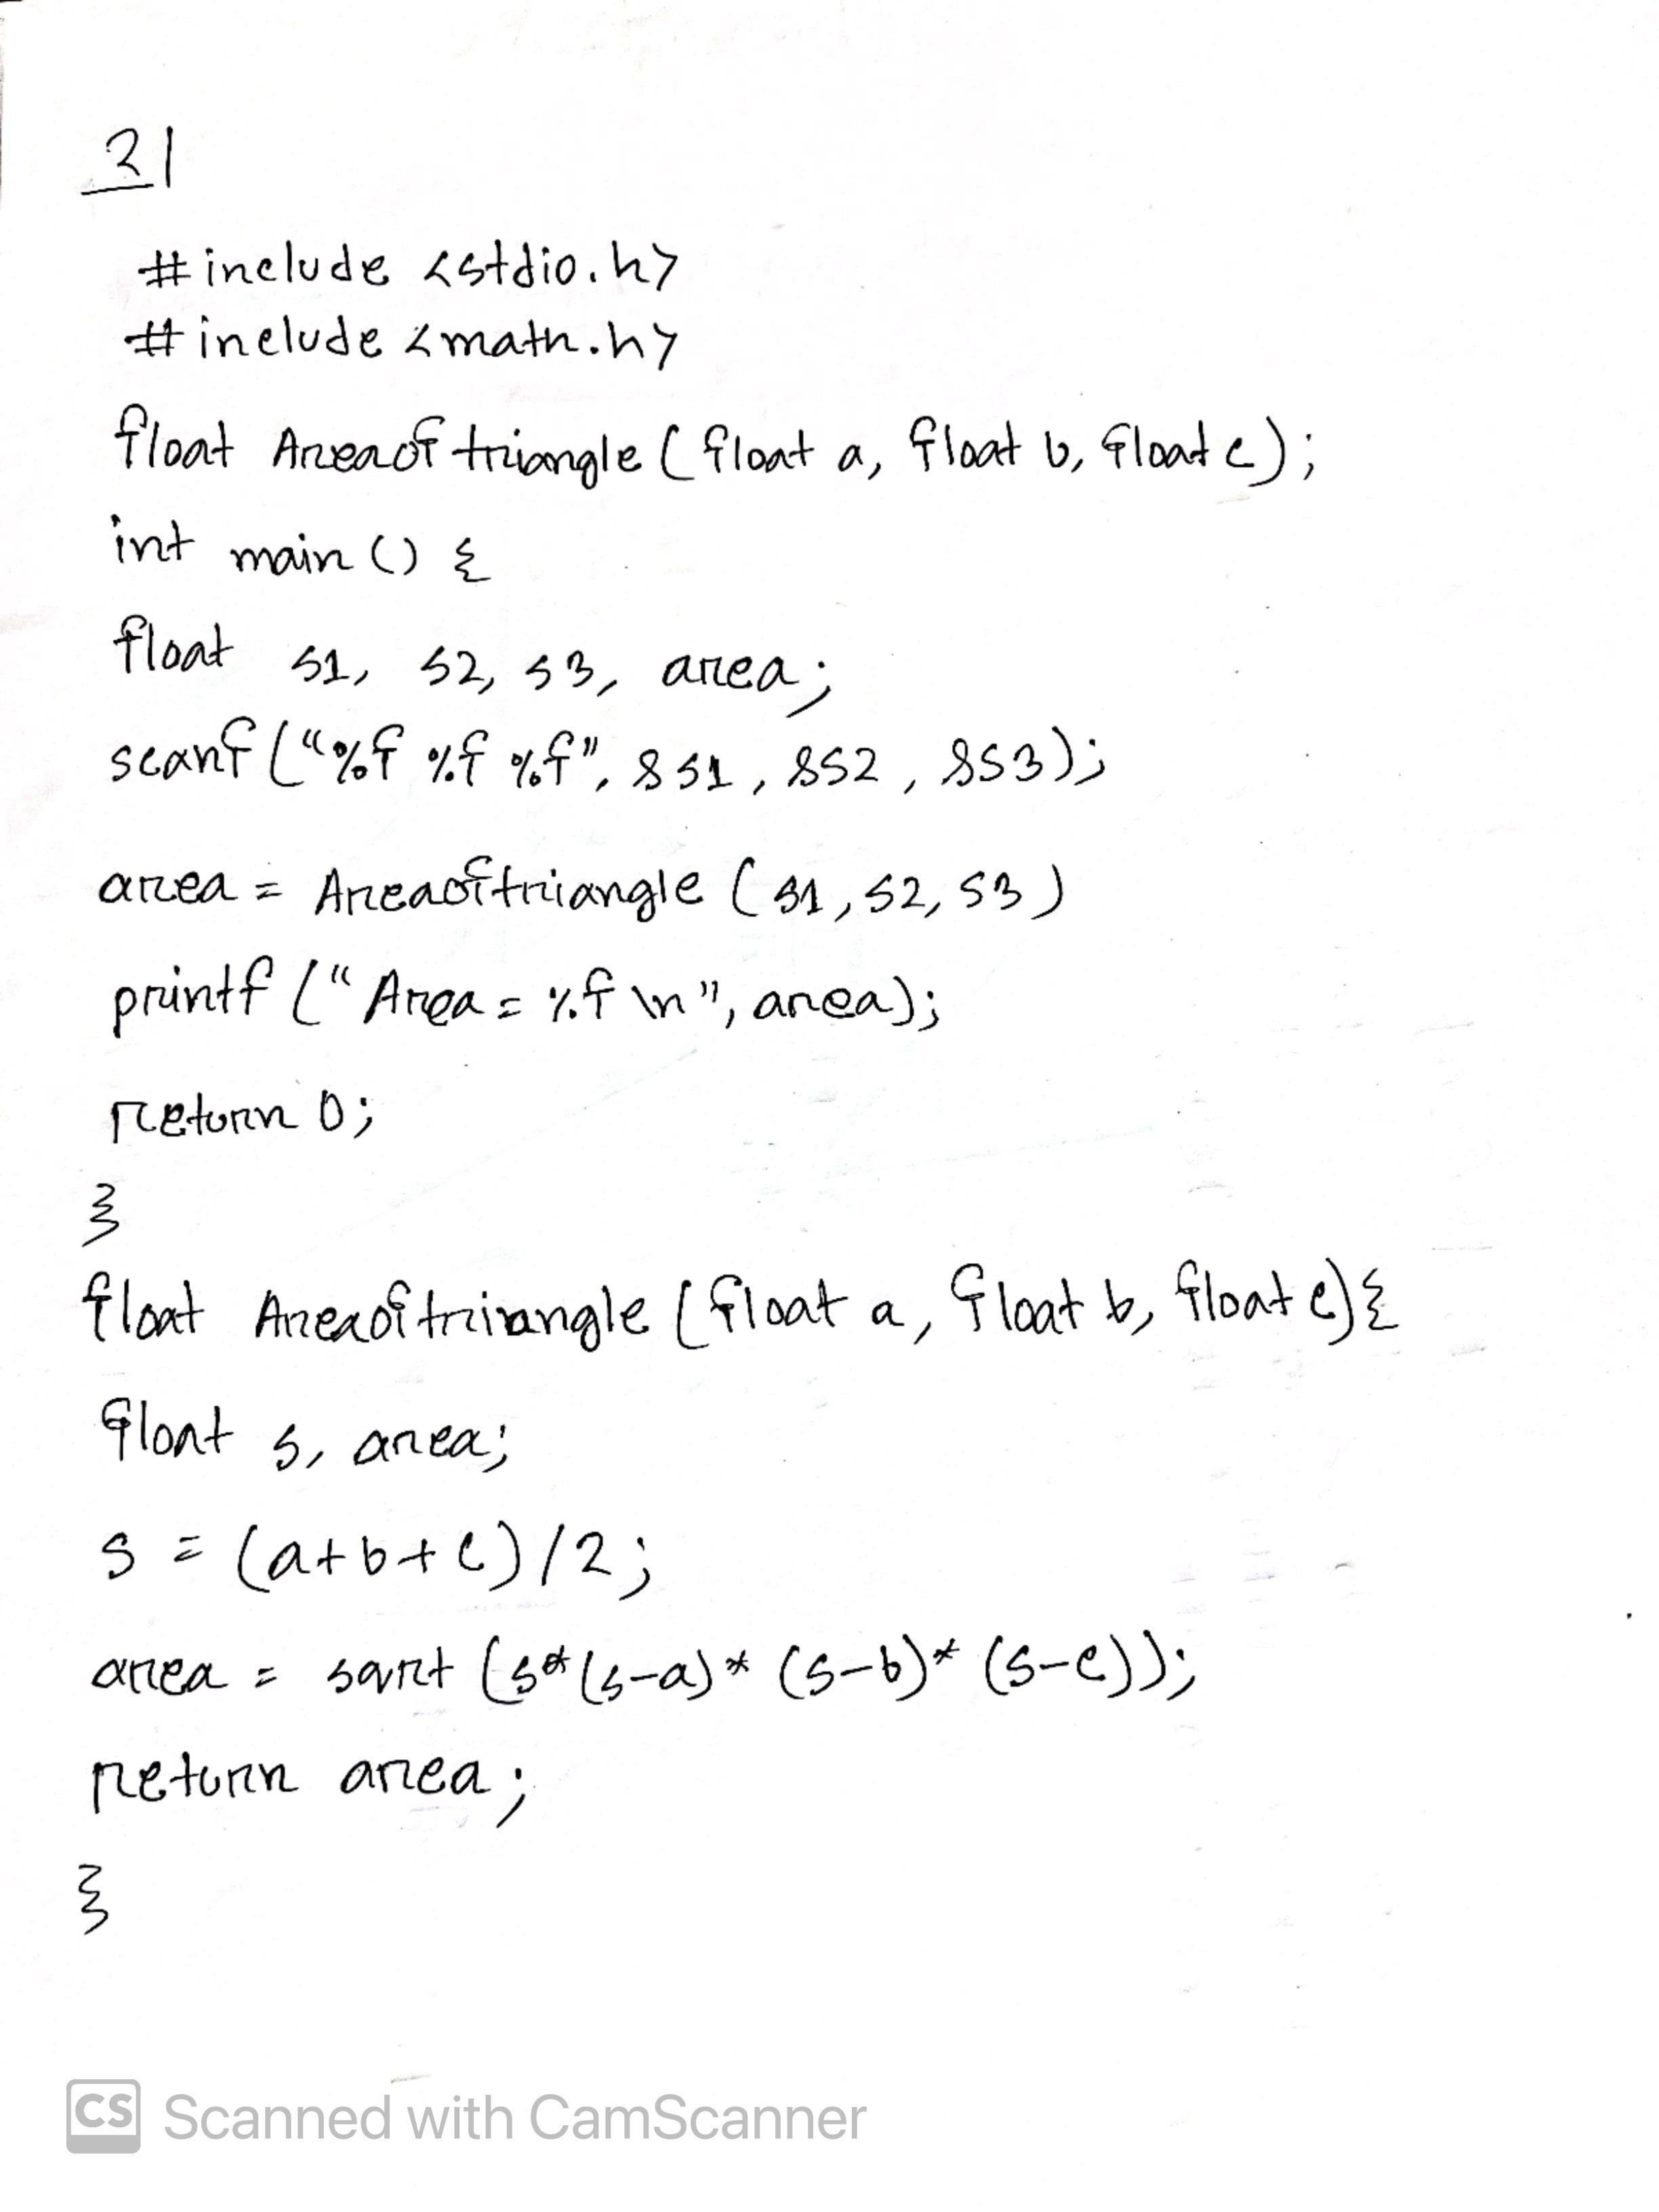 31
#include <stdio.h>
#include <math.h>
float Areaoftriangle (float a, float b, float c);
int main () {
float s1, s2, s3, area;
scanf ("%f %f %f", &s1, &s2, &s3);
area = Areaoftriangle (s1, s2, s3)
printf ("Area = %f \n", area);
return 0;
}
float Areaoftriangle (float a, float b, float c) {
float s, area;
s = (a+b+c)/2;
area = sqrt (s*(s-a)* (s-b)* (s-c));
return area;
}
CS Scanned with CamScanner